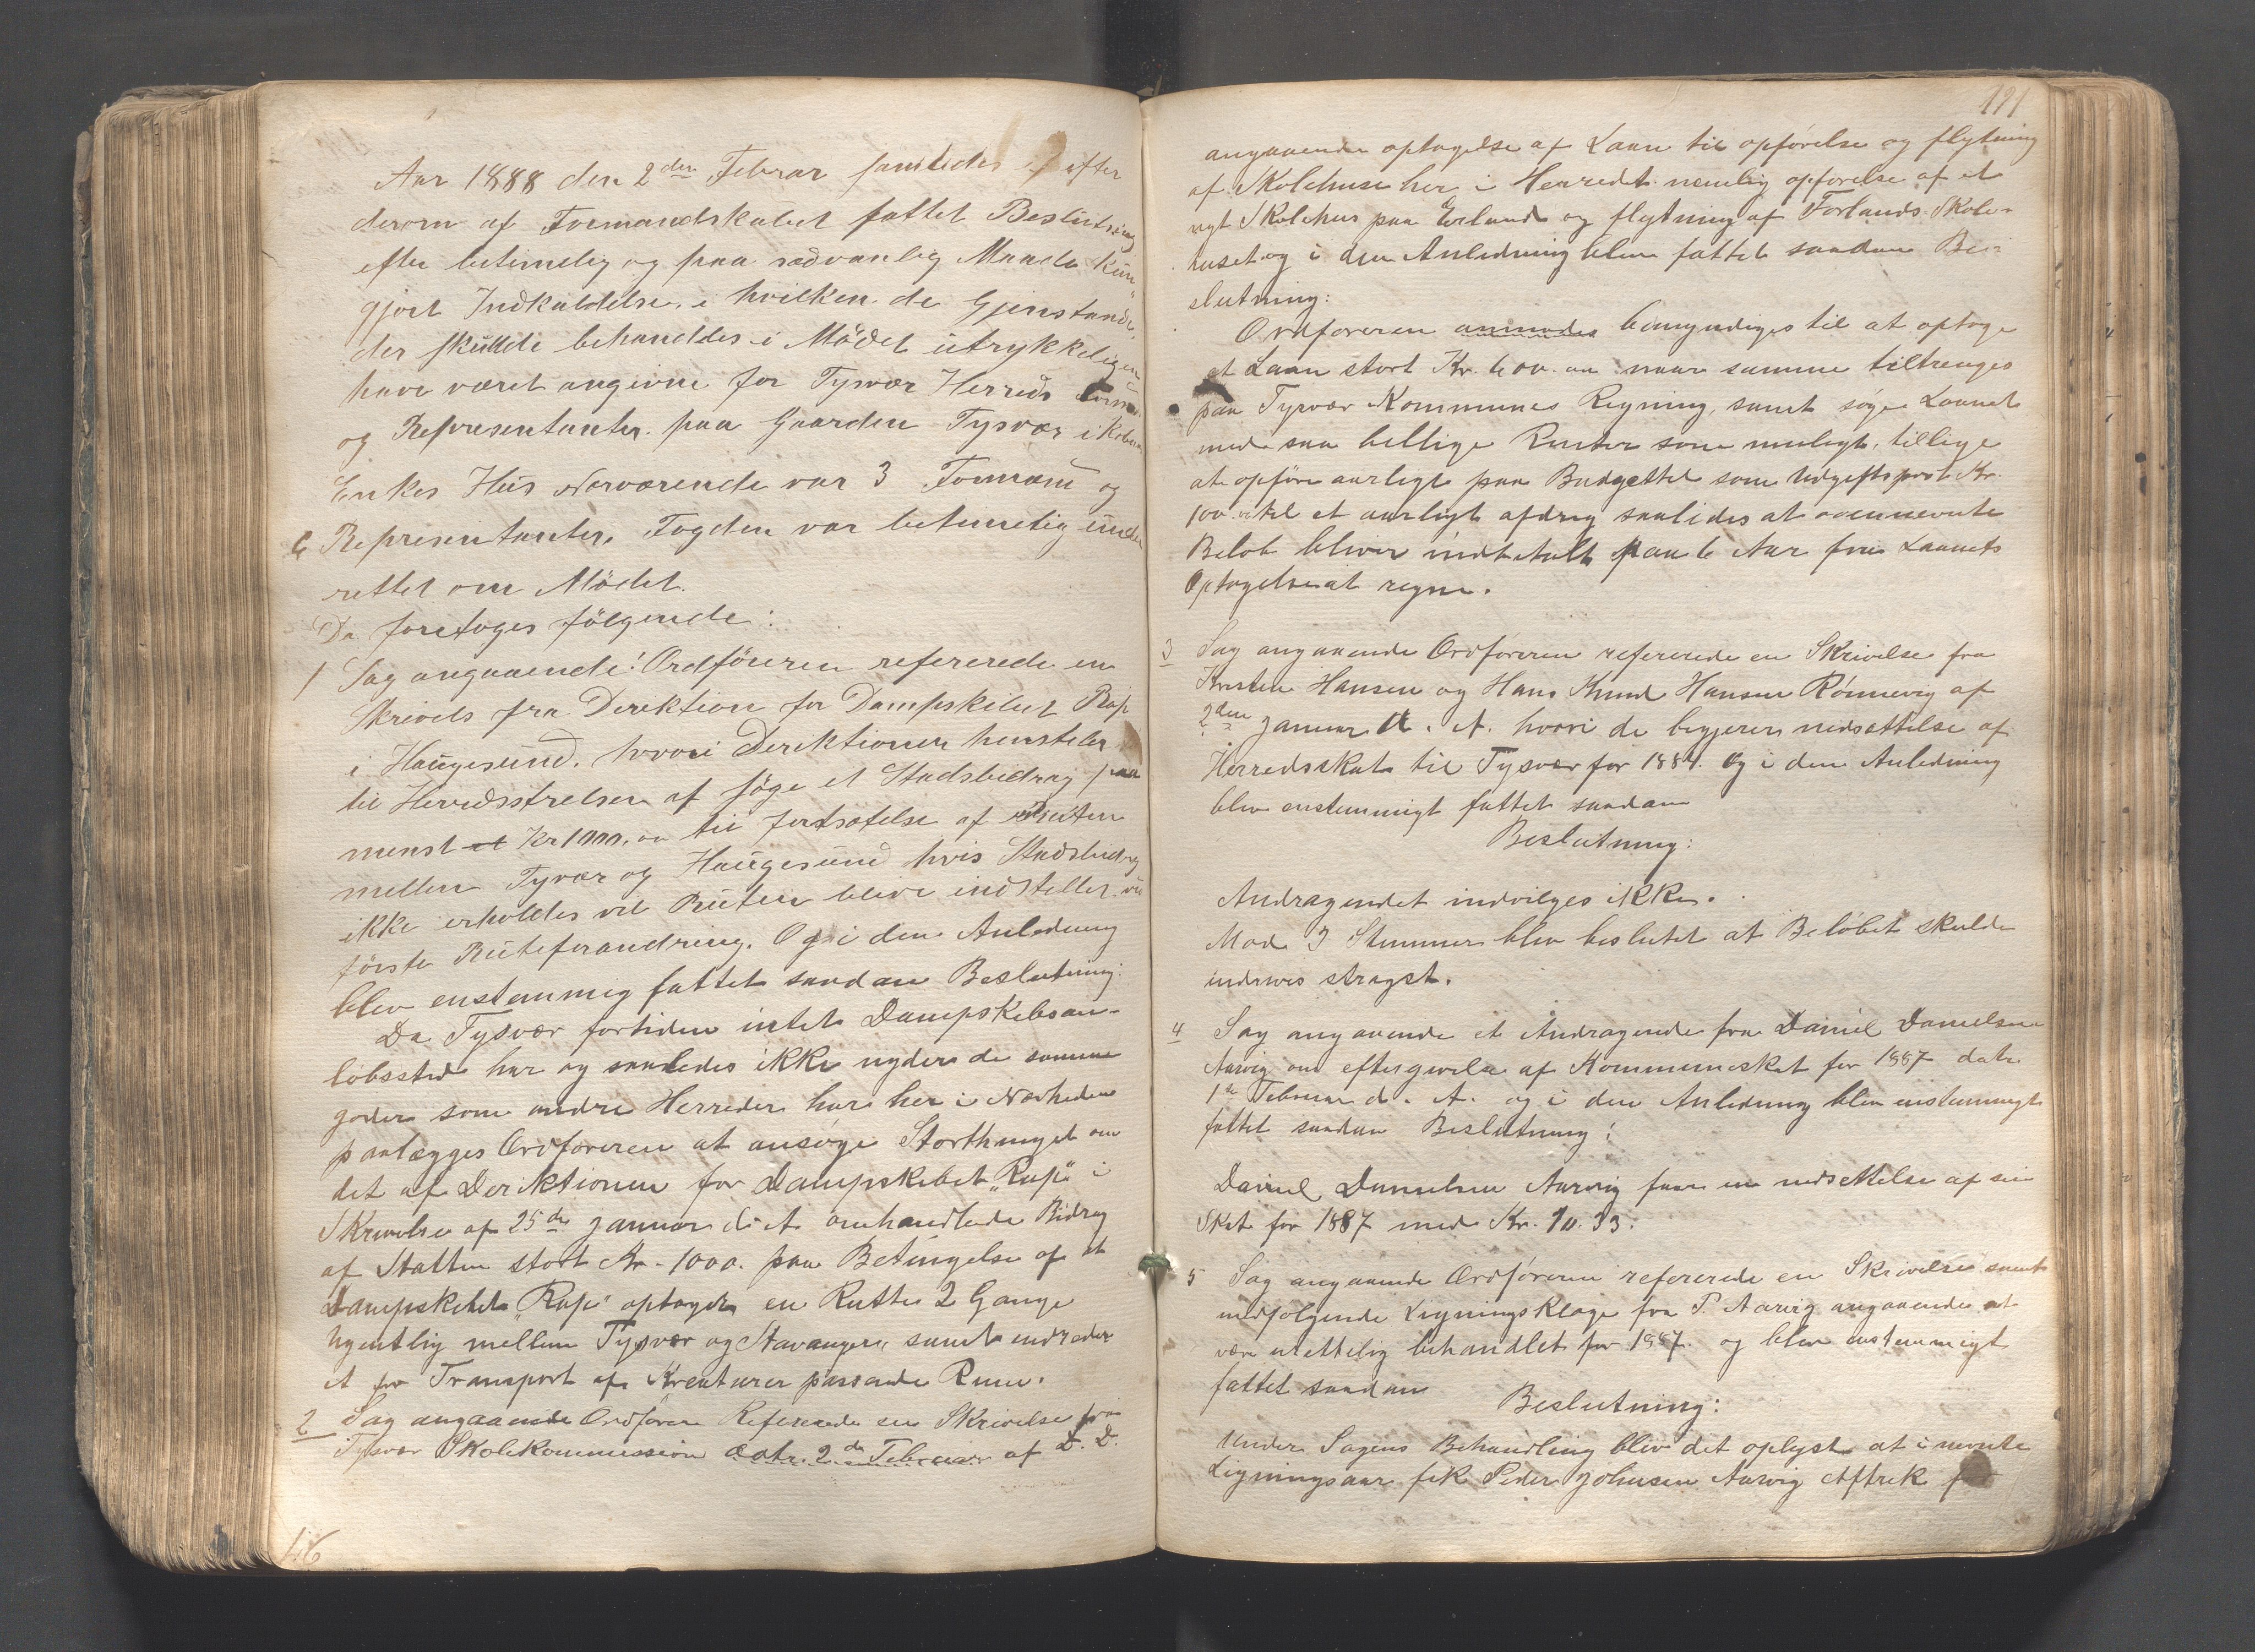 Aar 1888 den 2den Februar samledes efter
derom af Formandskabet fattet Beslutning
efter betimelig og paa sædvanlig Maade kun-
gjort Indkaldelse, i hvilken de Gjenstande,
der skulde behandles i Mödet utrykkeligen
have været angivne for Tysvær Herreds
og Representanter paa Gaarden Tysvær i
Enkes Hus Nærværende var 3 Formænd og
6 Representanter. Fogden var betimelig under
rettet om Mödet.
Da foretoges fölgende:
1 Sag angaaende: Ordföreren refererede en
Skrivels fra Direktion for Dampskibet Rap
i Haugesund, hvori Derektionen hensteler
til Herredsstrelsen af söge et Stadsbedrag paa
menst et Kr 1000,00 til fortsætelse af Ruten
mellem Tysvær og Haugesund hvis Stadsbedrag
ikke erholdes vil Ruten blive indstellet ve
förste Ruteforandring. Og i den Anledning
blev enstemmig fattet saadan Beslutning:
Da Tysvær fortiden intet Dampskibsan-
löbssted har og saaledes ikke nyder de samme
goder som andre Herreder har her i Nærheden
paalægges Ordföreren at ansöge Storthinget om
det af Deriktionen for Dampskibet "Rap" i
Skrivelse af 25de Januar d. A. omhandlede Bidrag
af Statten stort Kr. 1000. paa Betingelse af at
Dampskibet "Rap" optager en Rutte 2 Gange
ugentlig mellem Tysvær og Stavanger, samt indreder
et for Transport af Kreaturer passende Rum.
2 Sag angaaende Ordförere Refererede en Skrivelse fra
Tysvær Skolekommission datr. 2de Februar af D. D.
46
191
angaaende optagelse af Laan til opförelse og flytning
af Skolehuse her i Herredet nemlig opförelse af et
nyt Skolehus paa Erland og flytning af Forlands Skole-
huset og i den Anledning blev fattet saadan Be-
slutning:
Ordföreren anmodes bemyndiges til at optage
et Laan stort Kr. 600.00 naar samme tiltrenges
paa Tysvær Kommunes Regning, samt söge Laanet
med saa billige Renter som muligt, tillige
at opföre aarligt paa Budgettet som Udgiftspost Kr.
100 til et aarligt afdrag saaledes at ovennevnte
Belöb bliver indbetalt paa 6 Aar fra Laanets
Optagelse at regne.
3 Sag angaaende Ordföreren refererede en Skrivelse fra
Kristen Hansen og Hans Knud Hansen Rönnevig af
2den Januar d. A. hvori de begjerer nedsættelse af
Herredsskat til Tysvær for 1887. Og i den Anledning
blev enstemmigt fattet saadan
Beslutning:
Andragendet indvilges ikke.
Mod 3 Stemmer blev beslutet at Belöbet skulde
inddrives stragst.
4 Sag angaaende et Andragende fra Daniel Danielsen
Aarvig om eftergivelse af Kommuneskat for 1887 date
1ste Februar d. A. og i den Anledning blev enstemmigt
fattet saadan Beslutning:
Daniel Danielsen Aarvig faar en nedsettelse af sin
Skat for 1887 med Kr. 10.33.
5 Sag angaaende Ordföreren refererede en Skrivelse samt
medfölgende Ligningsklage fra P. Aarvig angaaende at
være urettelig behandlet for 1887. og blev enstemmigt
fattet saadan
Beslutning:
Under Sagens Behandling blev det oplyst at i nevnte
Ligningsaar fik Peder Johnsen Aarvig Aftrek